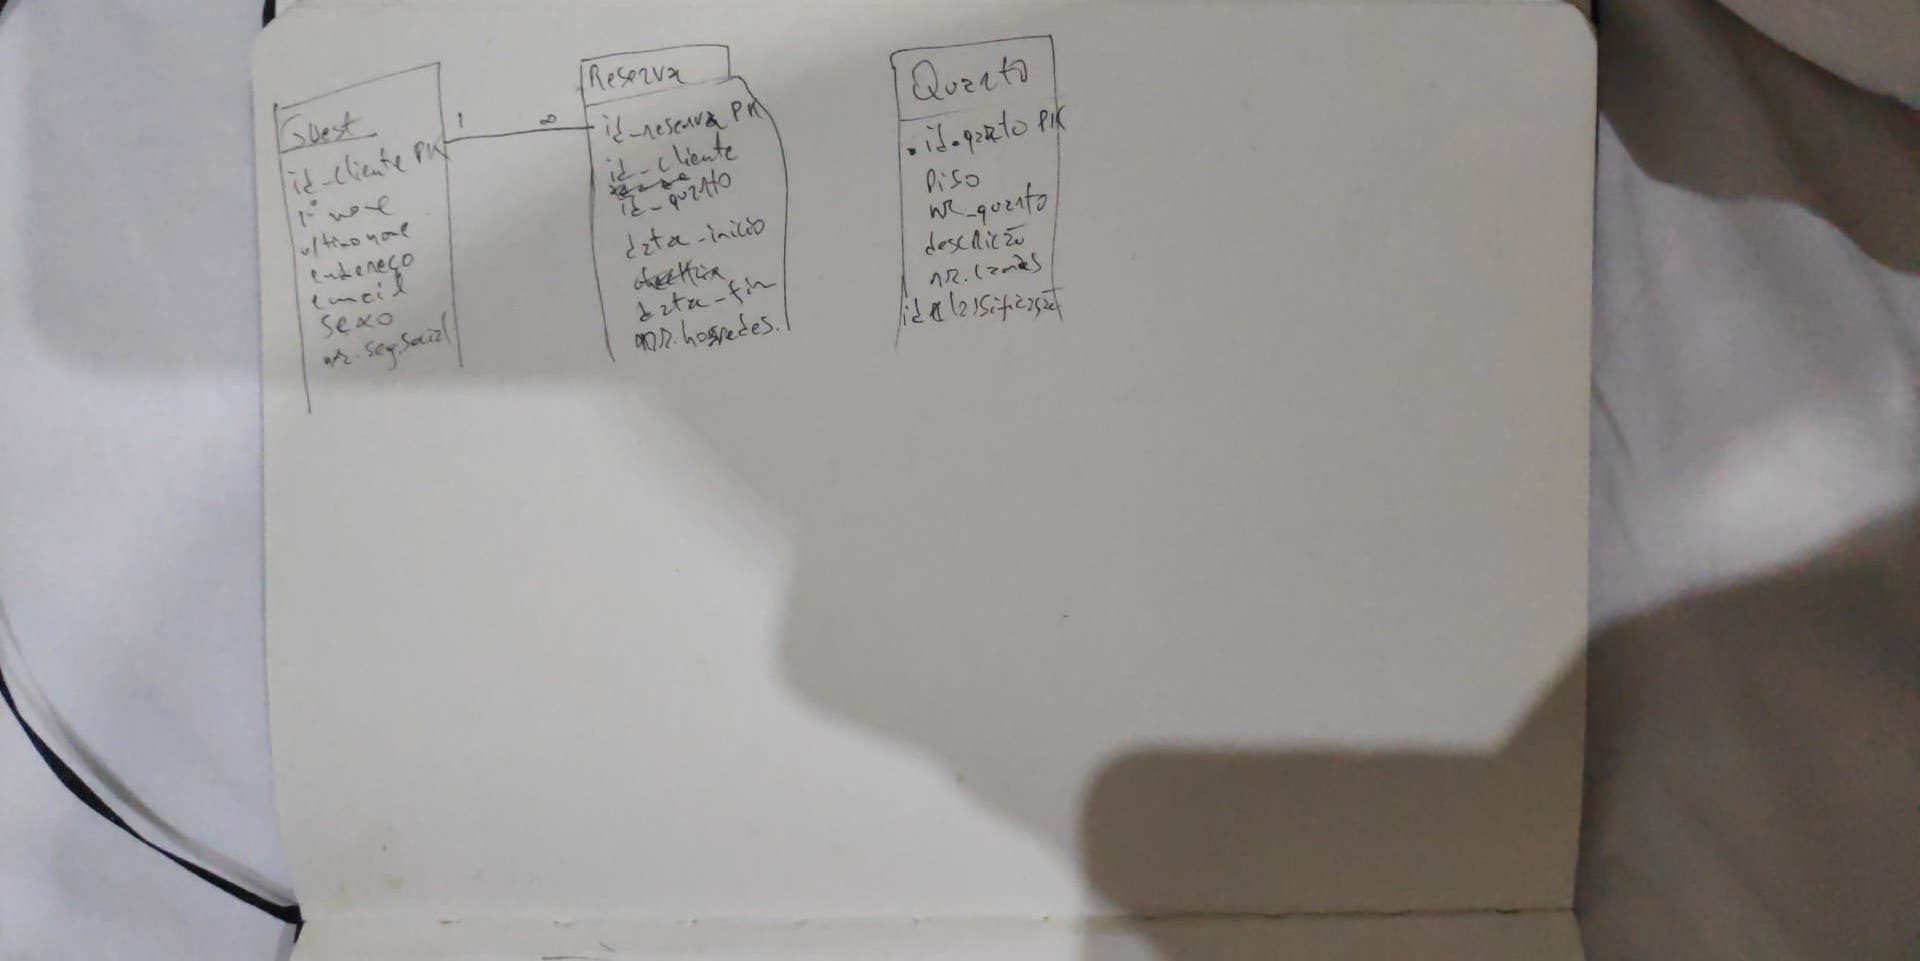 Guest
id_cliente PK
1º nome
ultimo nome
endereço
email
sexo
nr. seg. social
1 ∞
Reserva
id_reserva PK
id_cliente
id_quarto
data_inicio
data_fim
nr. hospedes.
Quarto
id.quarto PK
Piso
nr_quarto
descrição
nr. camas
id classificação